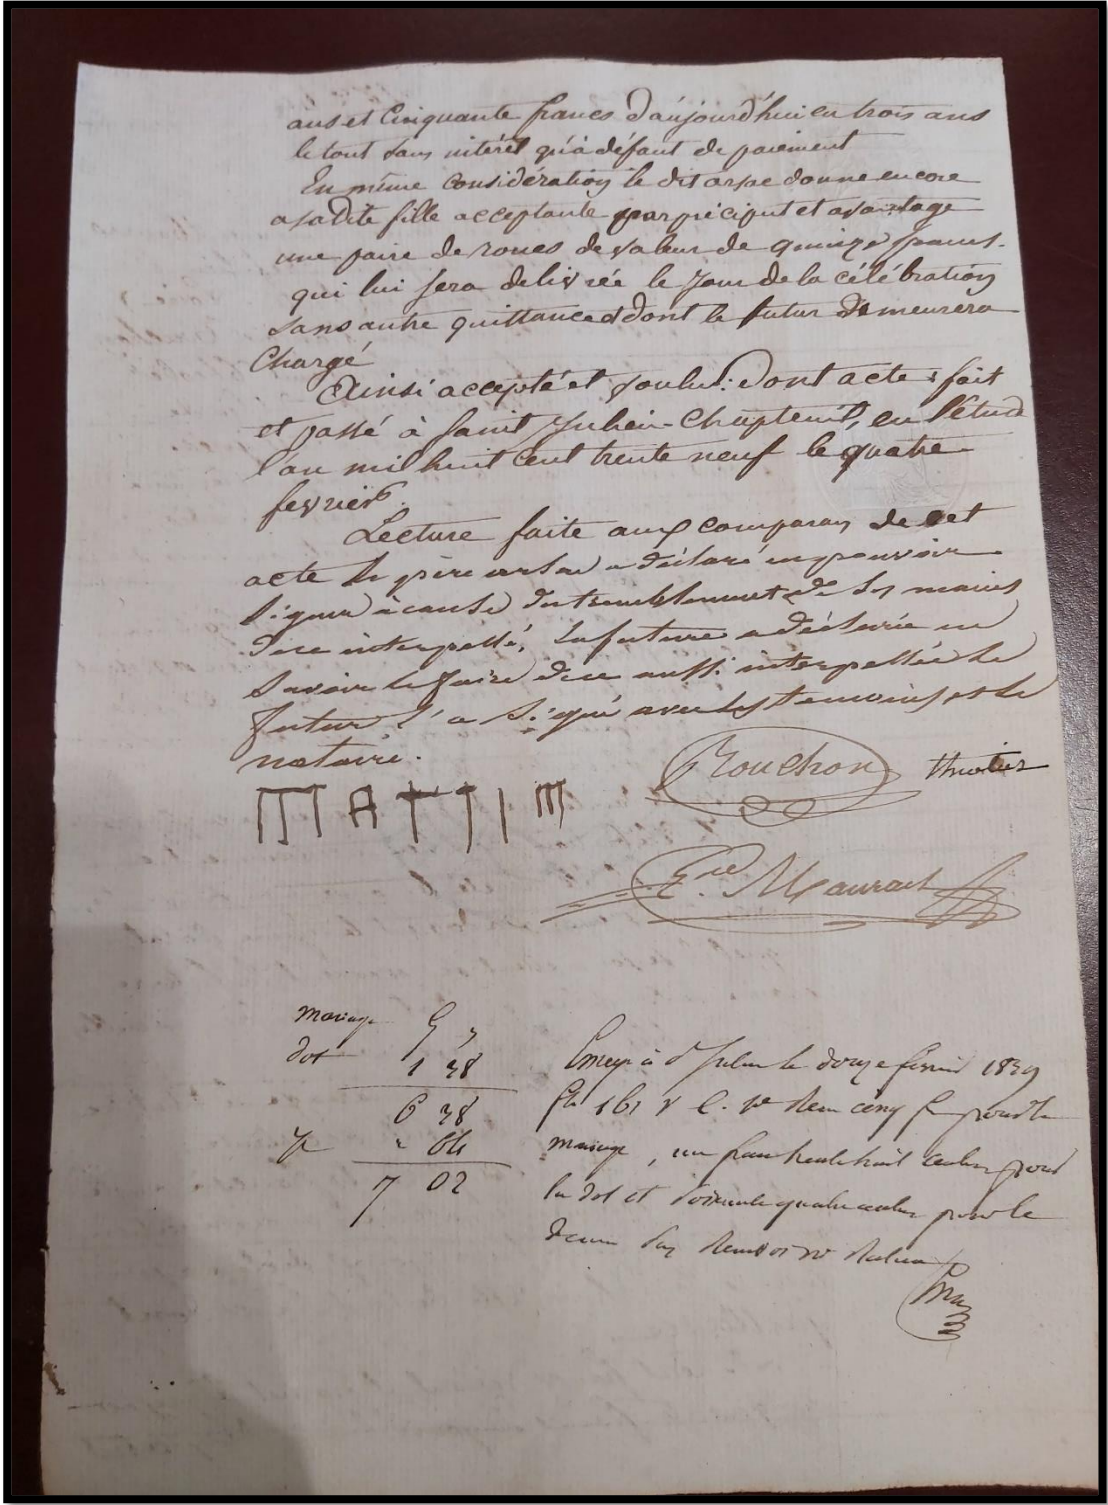 ans et Cinquante francs d'aujourd'hui en trois ans
le tout sans intérêt qu'à défaut de paiement
En même considération le dit arsac donne encore
a sa dite fille acceptante par préciput et avantage
une paire de roues de valeur de quinze francs.
qui lui sera delivrée le jour de la célébration
sans autre quittance dont le futur demeurera
Chargé
Ainsi accepté et voulu: dont acte: fait
et passé à Saint Julien-Chapteuil, en l'étude
l'an mil huit cent trente neuf le quatre
fevrier.
Lecture faite aux comparans de cet
acte le père arsac a déclaré ne pouvoir
signer à cause du tremblement de ses mains
de ce interpellé, la future a déclarée ne
savoir le faire de ce aussi interpellée le
futur l'a signé avec les temoins et le
notaire.
Rouchon
MATTIM
Maurat
mariage 5 "
dot 1 38
6 38
" 64
7 02
à St Julien le douze février 1839
fo 161 Reçu cinq f pour le
mariage, un franc trente huit centimes pour
la dot et soixante quatre centimes pour le